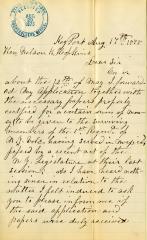 Hog Port Aug 17th 1878
Hon. Nelson K. Hopkins
Dear Sir
On or
about the 12th of May I forward
ed My Application together with
the necessary papers properly
certified for a certain sum of mon
ey to be given to the surviving
members of the 1st Regiment of
N. Y. Vols, having served in Mexico
passed by a recent act of the
N. Y. Legislature at their last
session. As I have heard noth
ing since in relation to the
matter I felt induced to ask
you to please inform me if
the said application and
papers were duly received